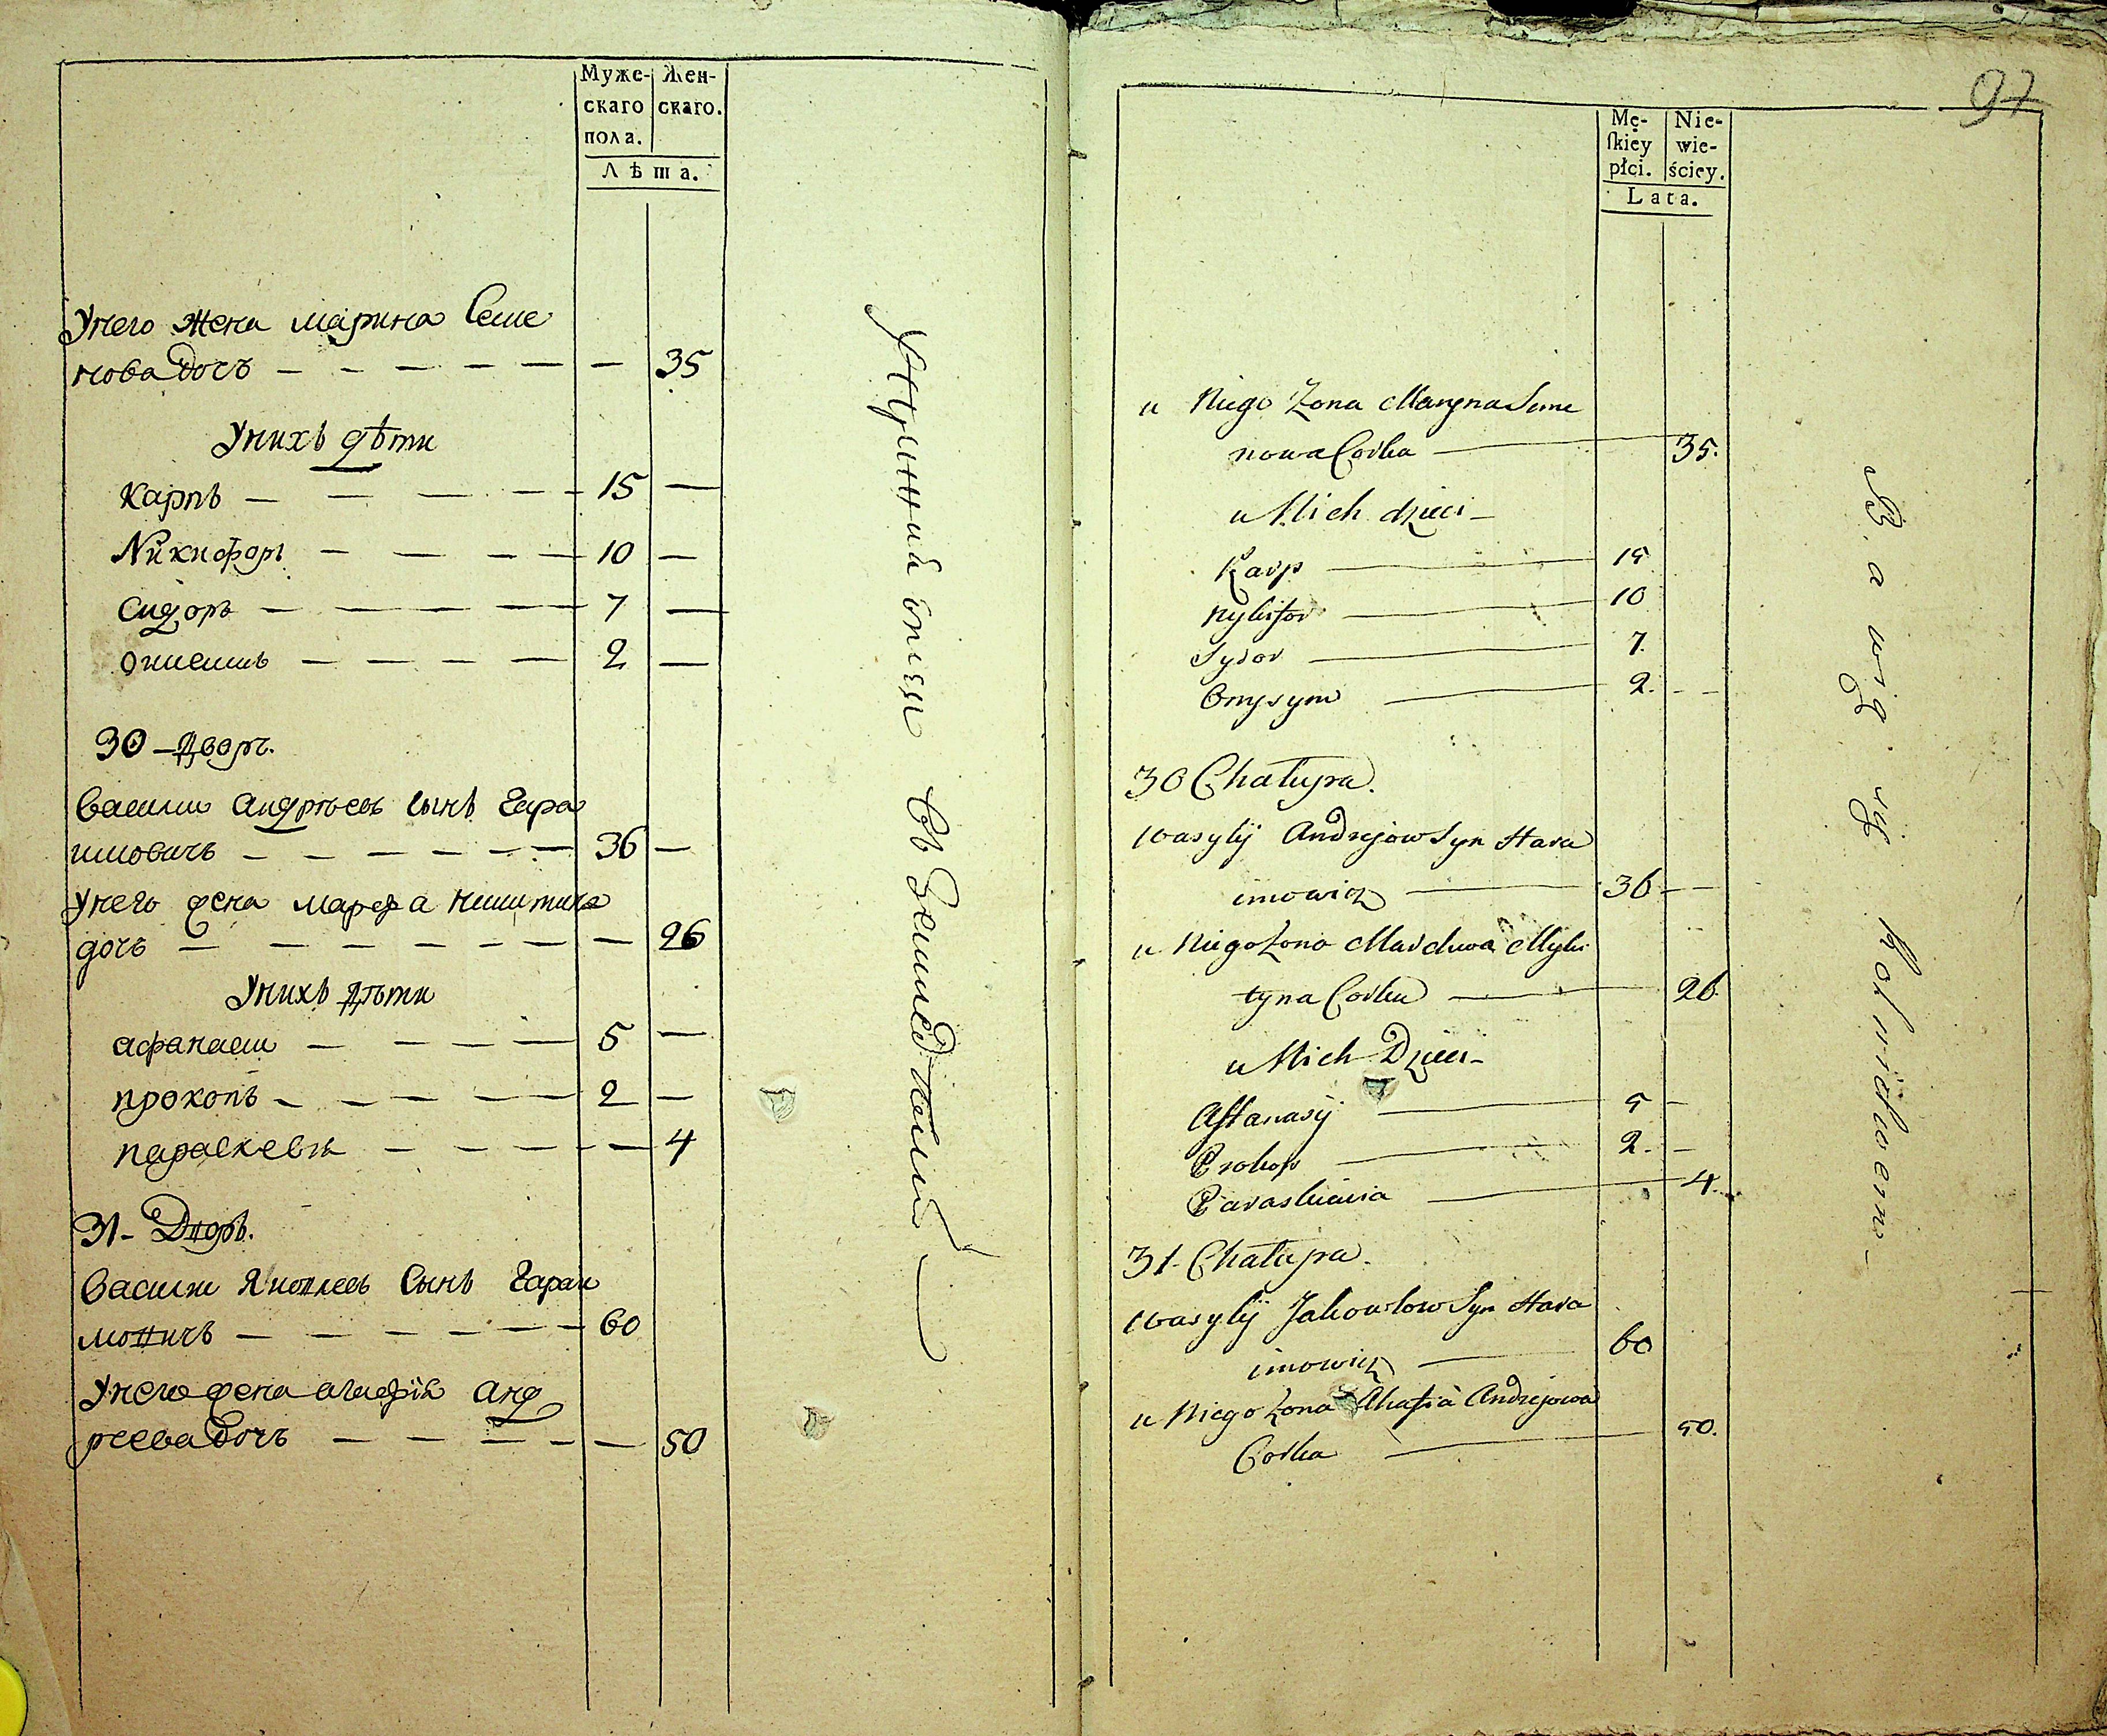 Муже- Жен-
скаго скаго.
пола.
Лѣта.
Унего жена марина Семе
нова дочъ — 35
Унихъ дѣти
Карпъ — 15 —
Никифоръ — 10 —
Сидоръ — 7 —
онисимъ — 2 —
30 — Дворъ.
Василии андрѣевъ сынъ Гара
имовичъ — 36 —
Унего жена марфа никитина
дочъ — 26
Унихъ дѣти
афанасии — 5 —
прокопъ — 2 —
параскевия — 4
31 - Дворъ.
Василии Яковлевъ Сынъ Гараи
мовичъ — 60
Унего жена агафїя анд
реева дочъ — 50
97
Mę- Nie-
ſkiey wie-
płci. ściey.
Lata.
u Niego Żona Maryna Seme
nowa Corka — 35.
u Nich dzieci —
Karp — 15
Nykifor — 10
Sydor — 7.
Onysym — 2. —
30 Chałupa.
Wasylij Andrejow Syn Hara
imowicz — 36 —
u Niego Żona Marchwa Myki
tyna Corka — 26
u Nich Dzieci —
Aftanasij — 5 —
Prokop — 2. —
Paraskiewia — 4.
31. Chałupa.
Wasylij Jakowlow Syn Hara
imowicz — 60
u Niego Żona Ahafia Andrejowa
Corka — 50.